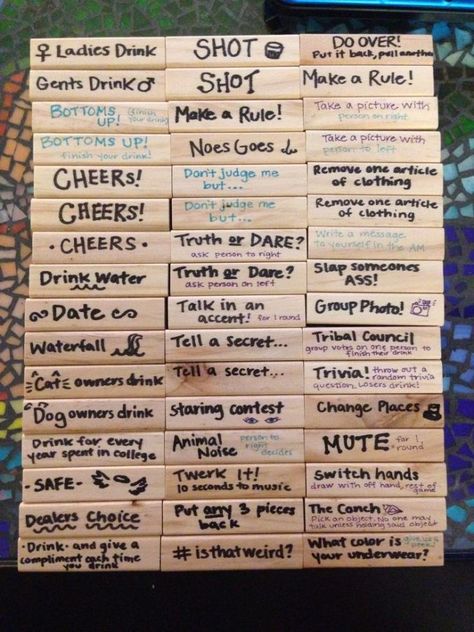 ♀ Ladies Drink
Gents Drink ♂
BOTTOMS UP! (finish your drink)
BOTTOMS UP!
finish your drink!
CHEERS!
CHEERS!
· CHEERS ·
Drink Water
Date
Waterfall
Cat owners drink
Dog owners drink
Drink for every
year spent in college
- SAFE -
Dealers Choice
· Drink · and give a
compliment each time
you drink
SHOT
SHOT
Make a Rule!
Noes Goes
Don't judge me
but...
Don't judge me
but...
Truth or DARE?
ask person to right
Truth or Dare?
ask person on left
Talk in an
accent! for 1 round
Tell a secret...
Tell a secret...
staring contest
Animal
Noise
person to
right
decides
Twerk It!
10 seconds to music
Put any 3 pieces
back
# is that weird?
DO OVER!
Put it back, pull another
Make a Rule!
Take a picture with
person on right
Take a picture with
person to left
Remove one article
of clothing
Remove one article
of clothing
Write a message
to yourself in the AM
Slap someones
ASS!
Group Photo!
Tribal Council
group votes on one person to
finish their drink
Trivia! throw out a
random trivia
question. Losers drink!
Change Places
MUTE for 1
round
Switch hands
draw with off hand, rest of
game
The Conch
Pick an object. No one may
talk unless holding said object
What color is
your underwear?
give us a
peek!